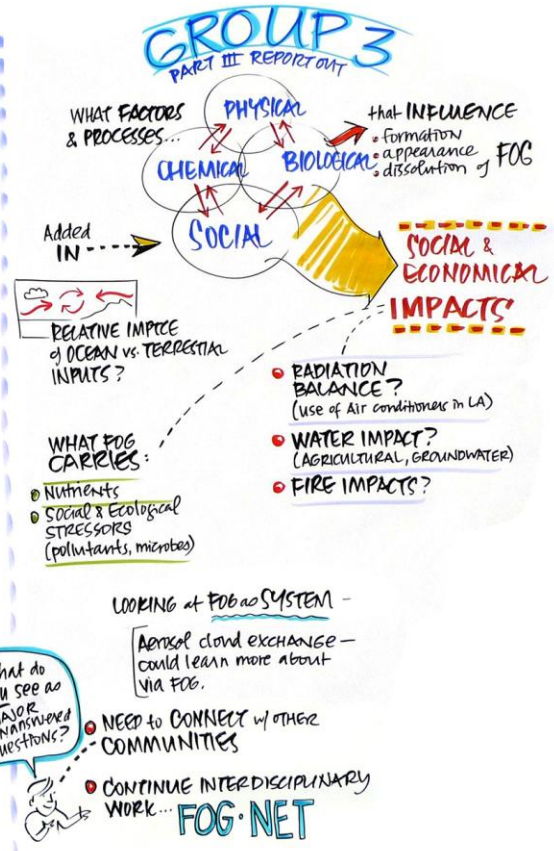 GROUP 3
PART III REPORT OUT
WHAT FACTORS
& PROCESSES...
PHYSICAL
CHEMICAL
BIOLOGICAL
SOCIAL
that INFLUENCE
formation
appearance
dissolution of FOG
Added
IN
SOCIAL &
ECONOMICAL
IMPACTS
RELATIVE IMPTCE
of OCEAN vs. TERRESTIAL
INPUTS?
RADIATION
BALANCE?
(use of Air conditioners in LA)
WATER IMPACT?
(AGRICULTURAL, GROUNDWATER)
FIRE IMPACTS?
WHAT FOG
CARRIES:
Nutrients
Social & Ecological
STRESSORS
(pollutants, microbes)
LOOKING at FOG as SYSTEM -
Aerosol cloud EXCHANGE —
could learn more about
via FOG.
hat do
u see as
AJOR
nanswered
uestions?
NEED to CONNECT w/ OTHER
COMMUNITIES
CONTINUE INTERDISCIPLINARY
WORK... FOG·NET